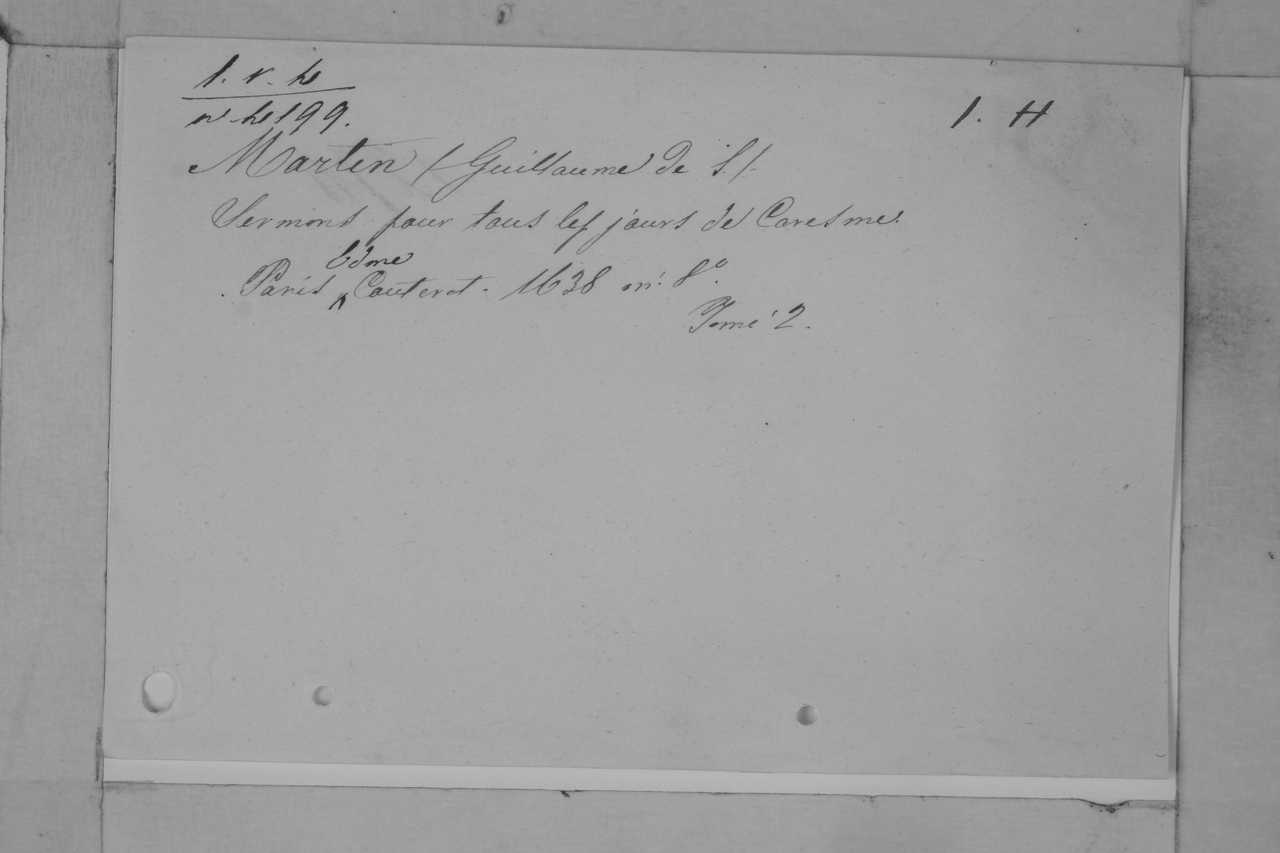 1. v. h
1. H
n. h 199.
Martin (Guillaume de S.)
Sermons pour tous les jours de Caresme.
Edme
Paris Couterot. 1638 in 8º.
Tome 2.